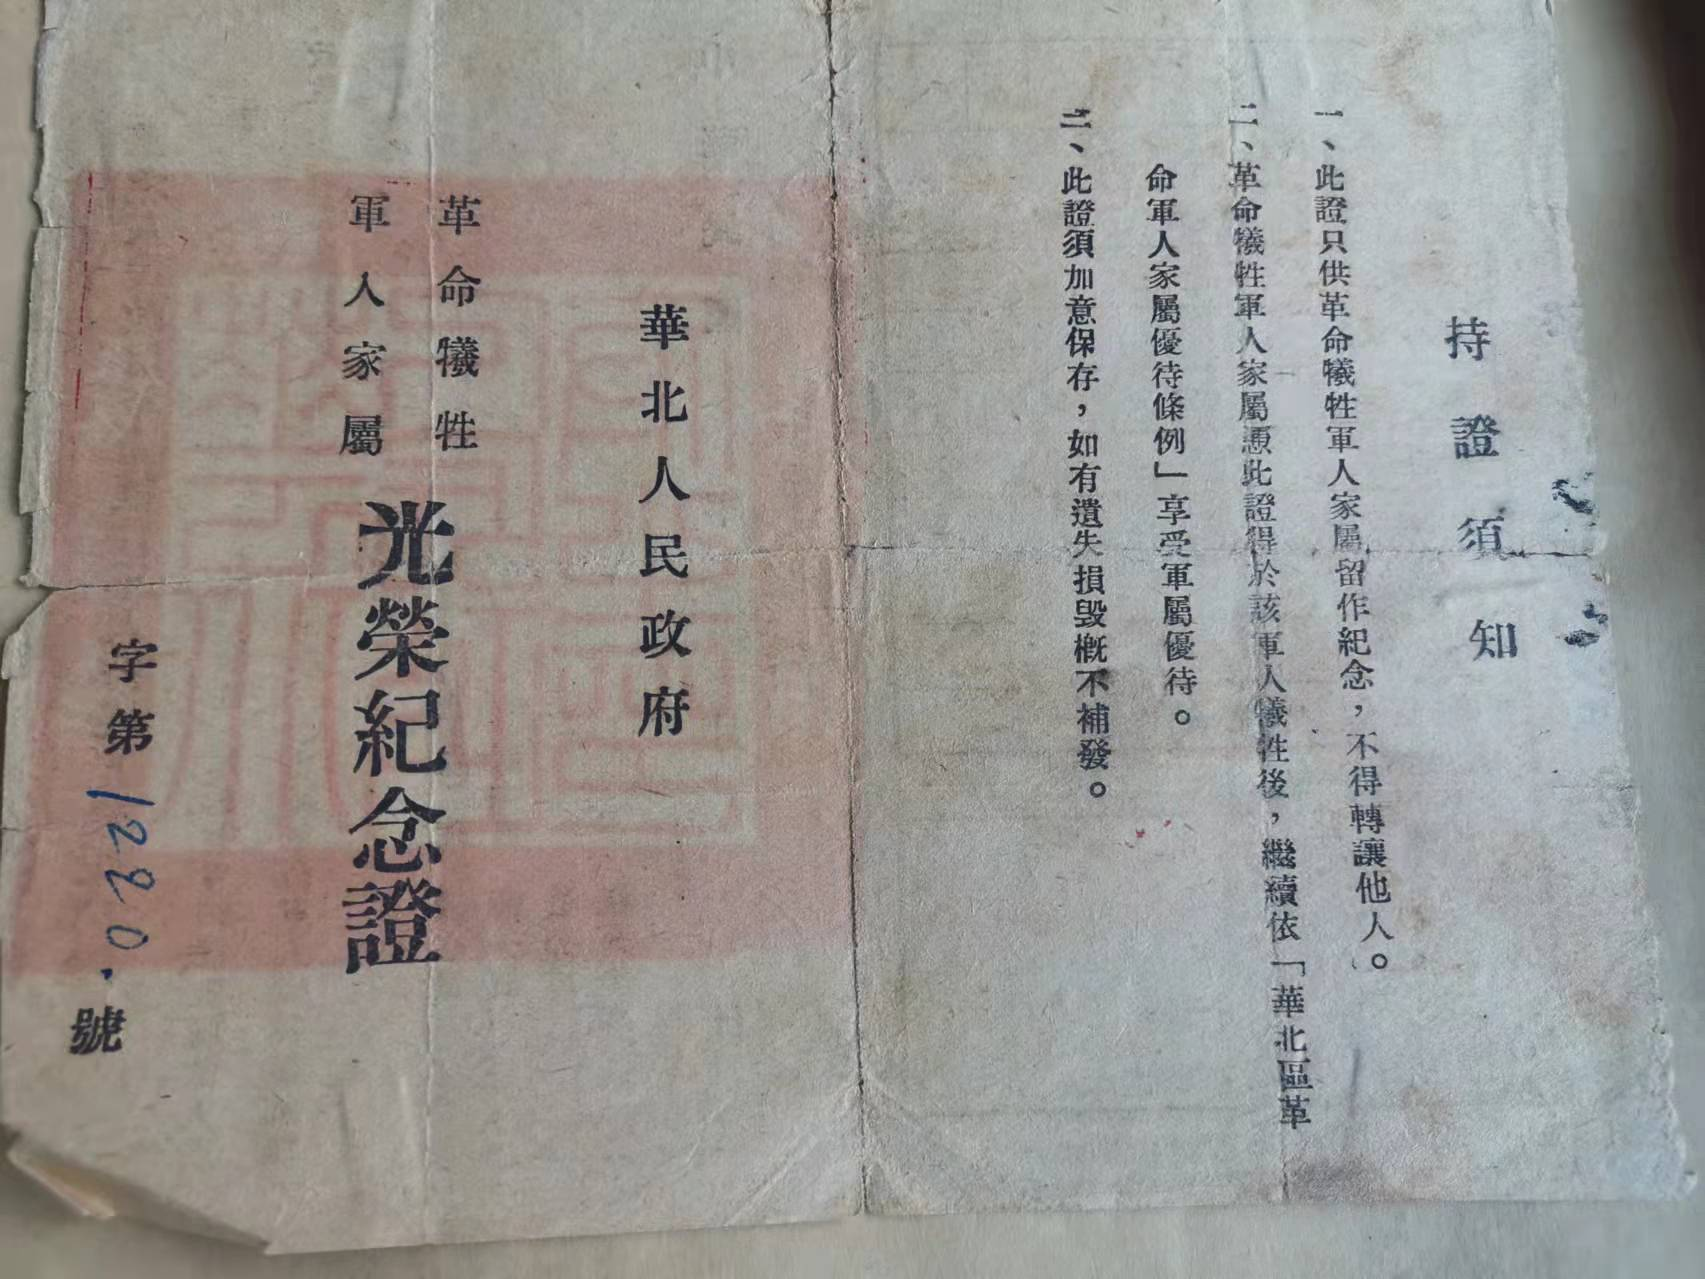 持證須知
一、此證只供革命犧牲軍人家屬留作紀念，不得轉讓他人。
二、革命犧牲軍人家屬憑此證得於該軍人犧牲後，繼續依「華北區革
命軍人家屬優待條例」享受軍屬優待。
三、此證須加意保存，如有遺失損毀概不補發。
華北人民政府
革命犧牲
軍人家屬
光榮紀念證
字第1220.號